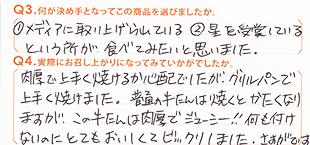 Q3.何が決め手となってこの商品を選びましたか。
①メディアに取り上げられている ②星を受賞している
という所が 食べてみたいと思いました。
Q4.実際にお召し上がりになってみていかがでしたか。
肉厚で上手く焼けるか心配でしたが、グリルパンで
上手く焼けました。普通の牛たんは焼くとかたくなり
ますが、この牛たんは肉厚でジューシー!!何も付け
ないのにとてもおいしくてビックリしました。さすがです